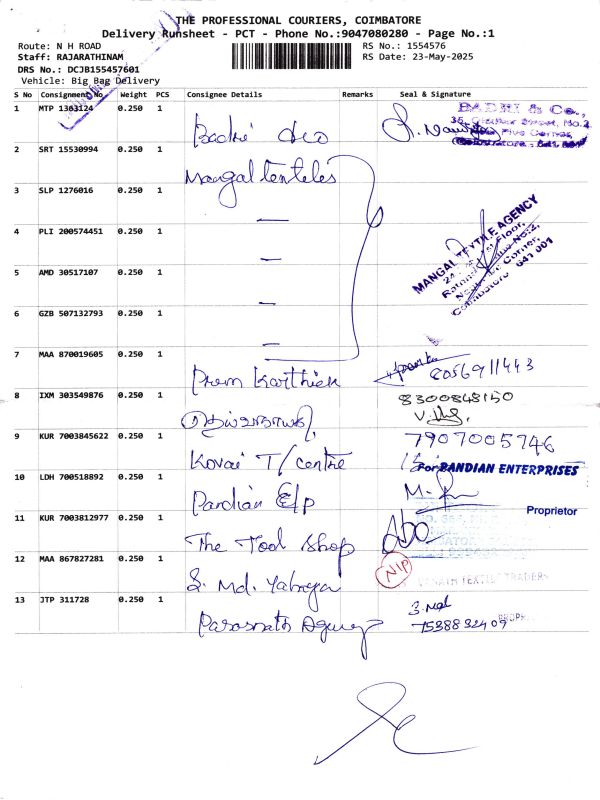 THE PROFESSIONAL COURIERS, COIMBATORE
Delivery Runsheet - PCT - Phone No.:9047080280 - Page No.:1
Route: N H ROAD RS No.: 1554576
Staff: RAJARATHINAM RS Date: 23-May-2025
DRS No.: DCJB155457601
Vehicle: Big Bag Delivery
S No Consignment No Weight PCS Consignee Details Remarks Seal & Signature
1 MTP 1363124 0.250 1 Badri &Co BADRI & Co.,
35,
Five Corner,
Coimbatore - 641 001
2 SRT 15530994 0.250 1 Mangal tenteles
3 SLP 1276016 0.250 1 —
4 PLI 200574451 0.250 1 —
MANGAL TEXTILE AGENCY
Coimbatore 641 001
5 AMD 30517107 0.250 1 —
6 GZB 507132793 0.250 1 —
7 MAA 870019605 0.250 1 Prem Karthick 8056911443
8 IXM 303549876 0.250 1 8300848150
9 KUR 7003845622 0.250 1 Kovai T/centre 7907005746
For PANDIAN ENTERPRISES
10 LDH 700518892 0.250 1 Pandian E/p
Proprietor
11 KUR 7003812977 0.250 1 The Tool Shop
12 MAA 867827281 0.250 1 S. Md. Yahreya NIP
TEXTILE TRADERS
13 JTP 311728 0.250 1 Parasnath Agency
7538832409